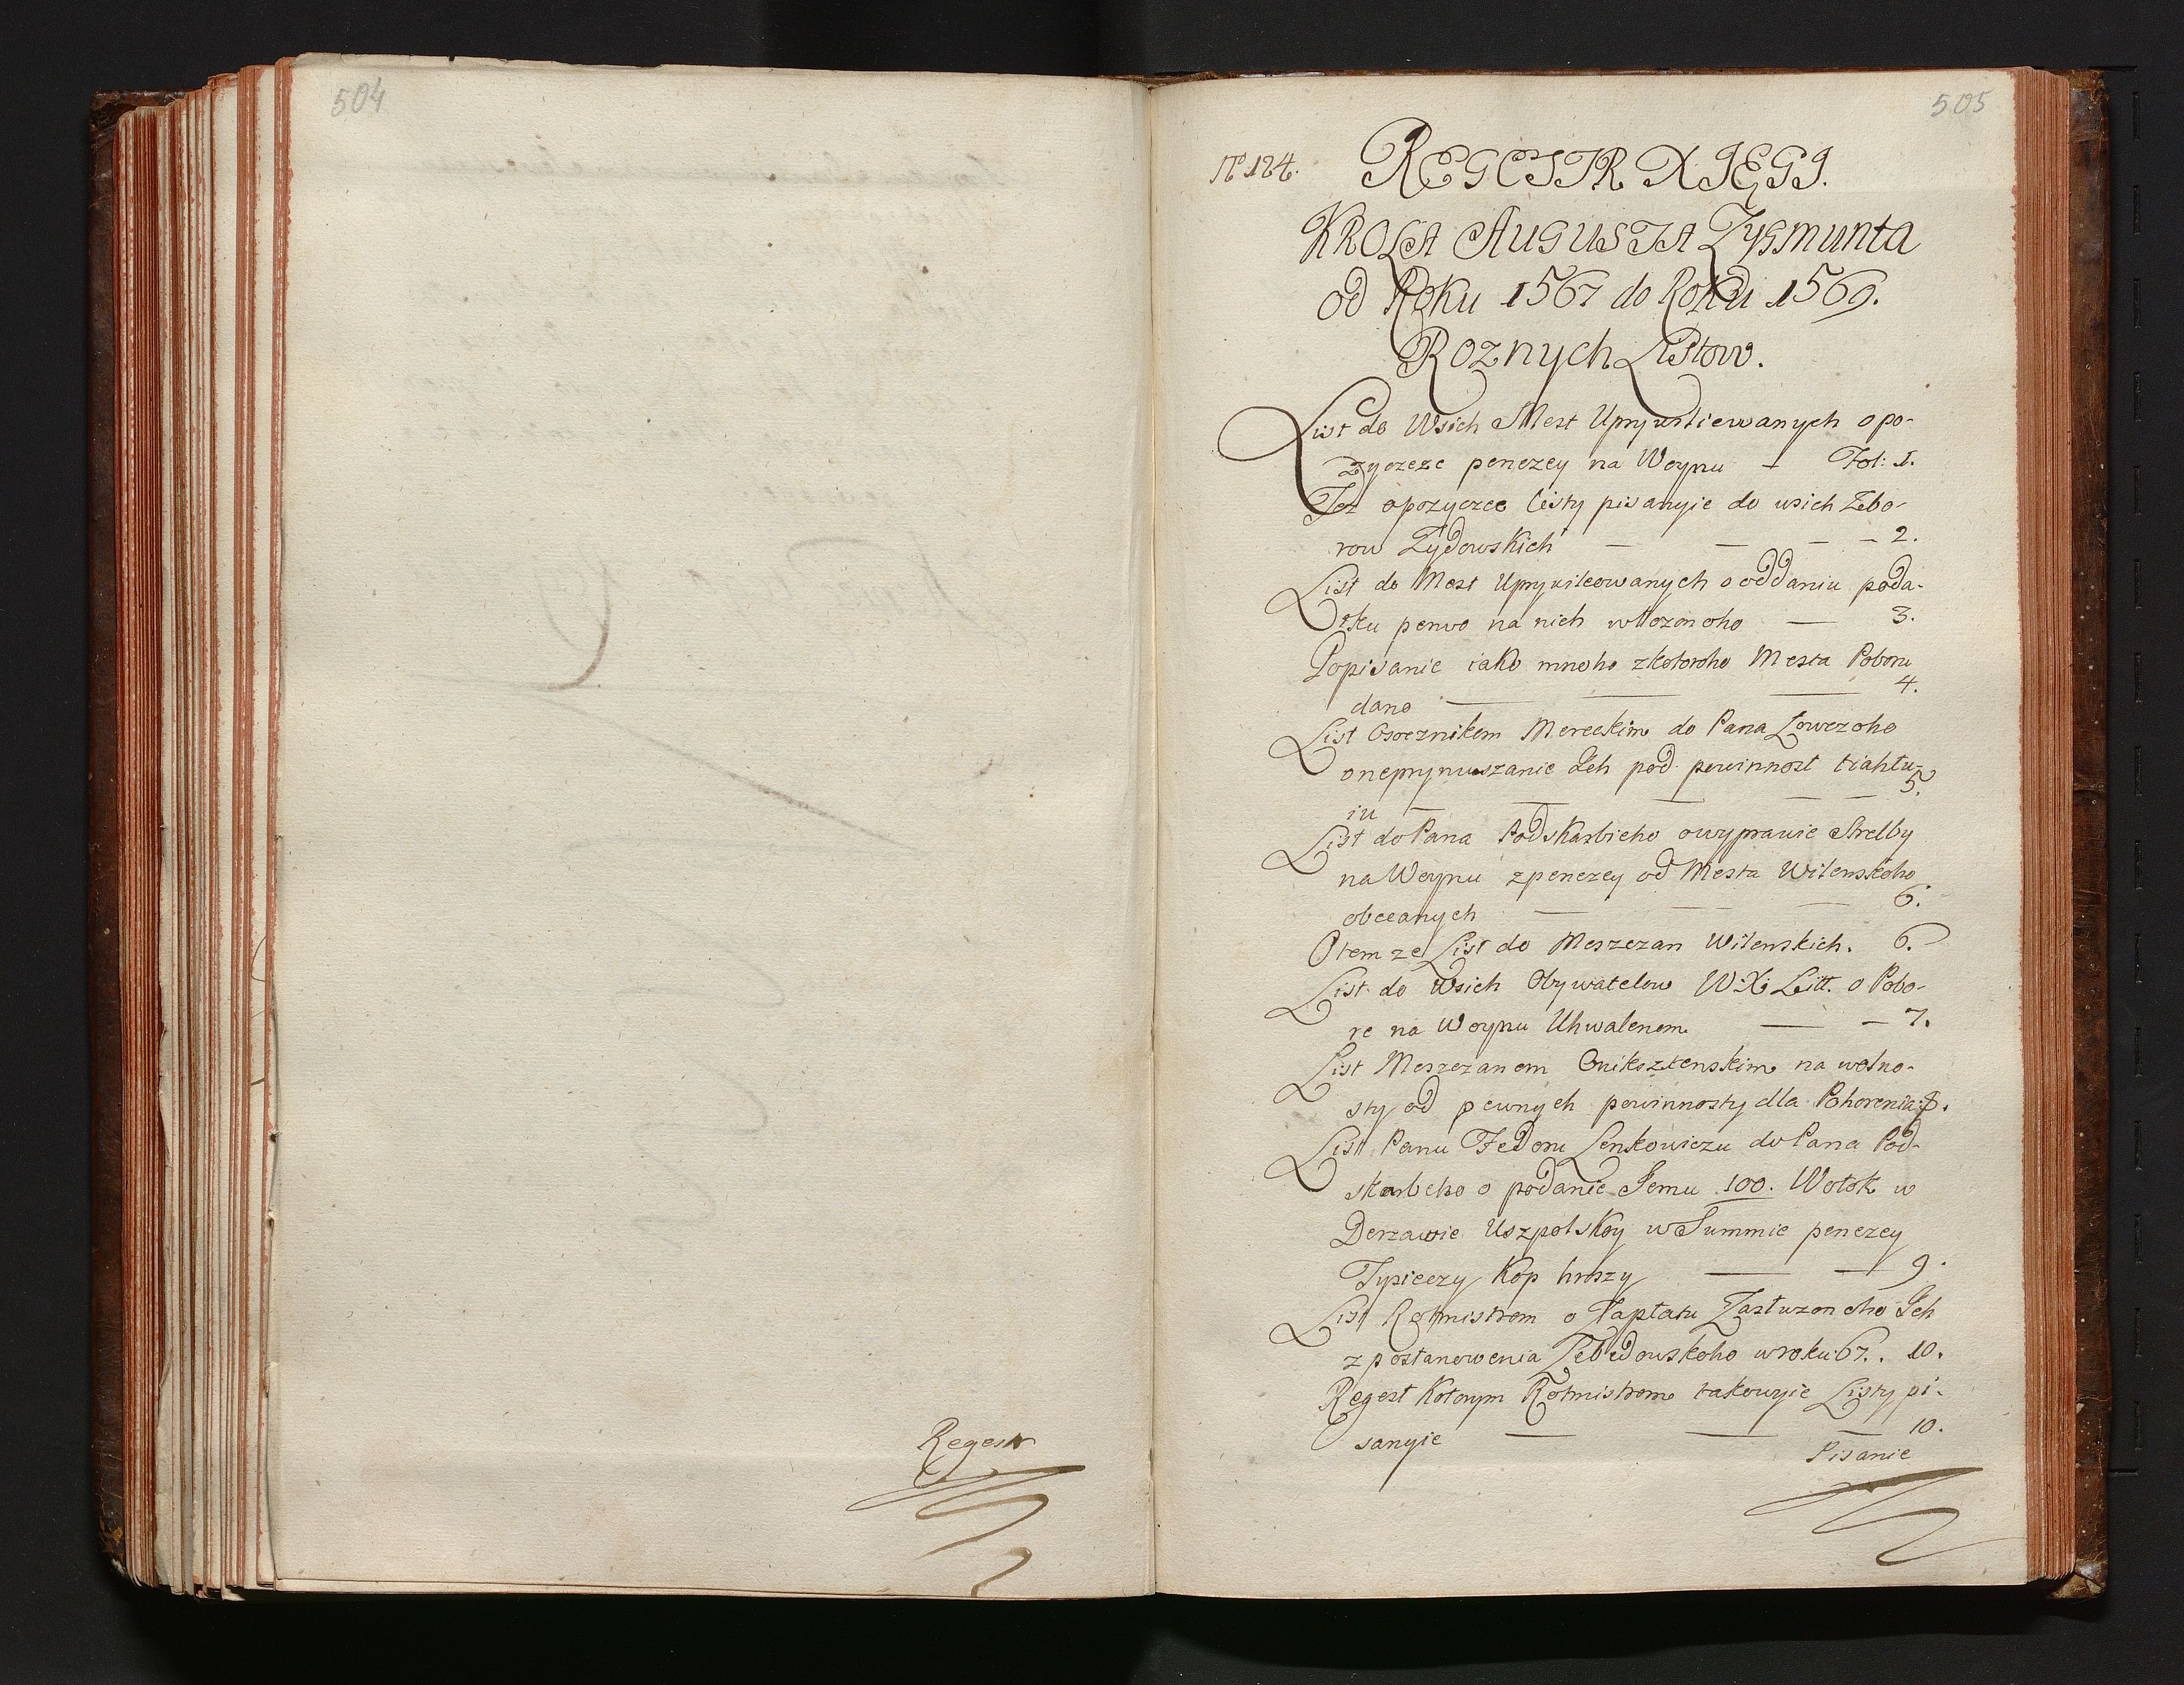 504
Regestr
505
No 124. REGESTR XIĘGI.
KROLA AUGUSTA Zygmunta
od Roku 1567 do Roku 1569.
Roznych Listow.
List do Wsich Mest Uprywiliewanych o po-
zyczcze penezey na Woynu — Fol: 1.
Toz o pozyczce Listy pisanyie do wsich Zbo-
row Zydowskich — — — — 2.
List do Mest Uprywileowanych o oddaniu poda-
tku perwo na nich włozonoho — 3.
Popisanie iako mnoho z kotoroho Mesta Poboru
dano — — — 4.
List Osocznikom Mereckim do Pana Łowczoho
o neprymuszanie Ich pod powinnost tiahłu-
iu — — — — — 5.
List do Pana Podskarbieho o wyprawie Strelby
na Woynu z penezey od Mesta Wilenskoho
obecanych — — — 6.
O tem ze List do Meszczan Wilenskich. 6.
List do Wsich Obywatelow W: X: Litt. o Pobo-
re na Woynu Uhwalenom — — 7.
List Meszczanom Oniksztenskim na wolno-
sty od pewnych powinnosty dla Pohorenia: 8.
List Panu Fedoru Lenkowiczu do Pana Pod-
skarbeho o podanie Iemu 100. Wołok w
Derzawie Uszpolskoy w Summie penezey
Tysieczy Kop hroszy — — 9.
List Rotmistrom o Zapłatu Zasłuzonoho Ich
z postanowenia Lebedowskoho w roku: 67.. 10.
Regest Kotorym Rotmistrom takowyie Listy pi-
sanyie — — — 10.
Pisanie